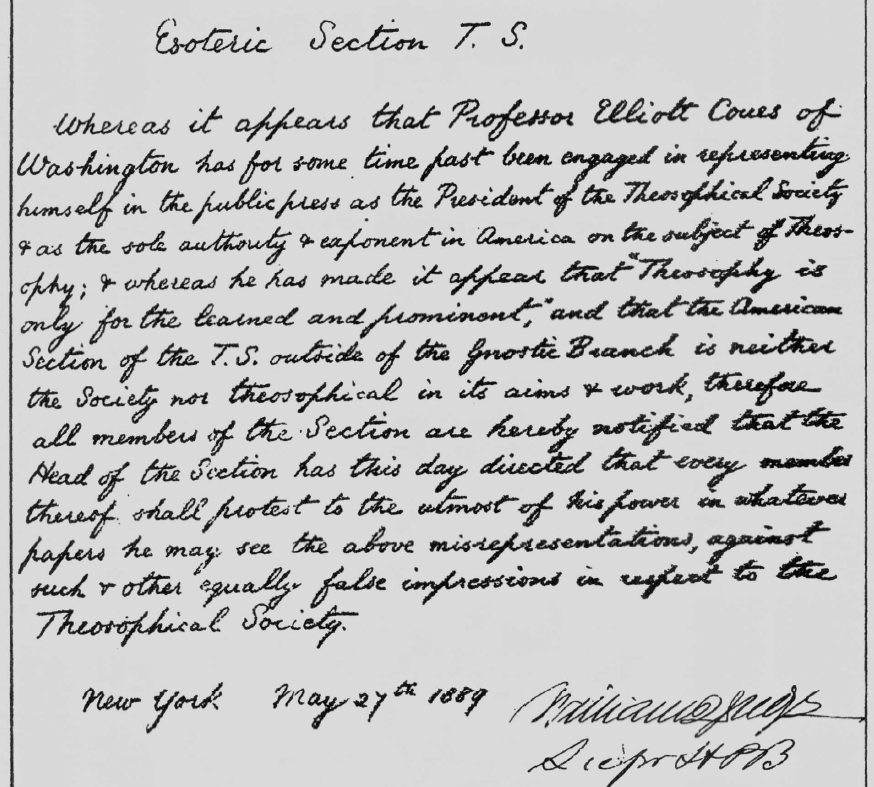 Esoteric Section T. S.
Whereas it appears that Professor Elliott Coues of
Washington has for some time past been engaged in representing
himself in the public press as the President of the Theosophical Society
& as the sole authority & exponent in America on the subject of Theos-
ophy; & whereas he has made it appear that "Theosophy is
only for the learned and prominent," and that the American
Section of the T.S. outside of the Gnostic Branch is neither
the Society nor theosophical in its aims & work, therefore
all members of the Section are hereby notified that the
Head of the Section has this day directed that every member
thereof shall protest to the utmost of his power in whatever
papers he may see the above misrepresentations, against
such & other equally false impressions in respect to the
Theosophical Society.
New York May 27th 1889 William Q Judge
Sec for HPB